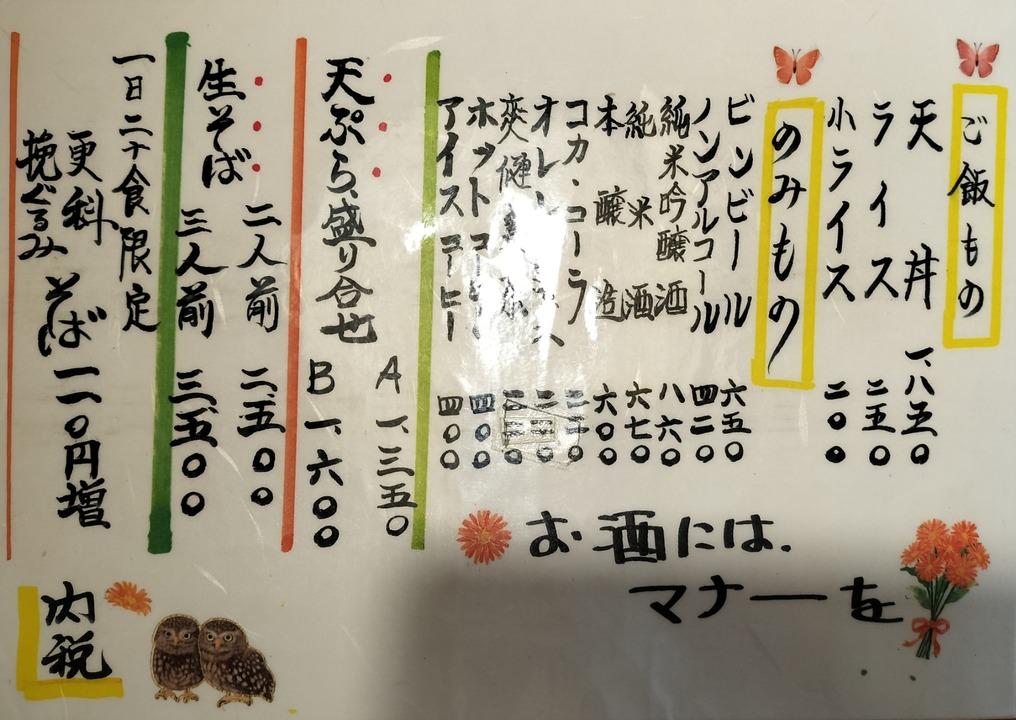 ご飯もの
天丼 一、八五〇
ライス 二五〇
小ライス 二〇〇
のみもの
ビンビール 六五〇
ノンアルコール 四二〇
純米吟醸酒 八六〇
純米酒 六七〇
本醸造 六〇〇
コカ・コーラ
オレンジ
爽健
ホットコーヒー 四〇〇
アイスコーヒー 四〇〇
天ぷら盛り合せ
A 一、三五〇
B 一、六〇〇
生そば
二人前 二、五〇〇
三人前 三、五〇〇
一日二十食限定
更科
挽ぐるみ
そば 一一〇円増
お酒には、
マナーを
内税